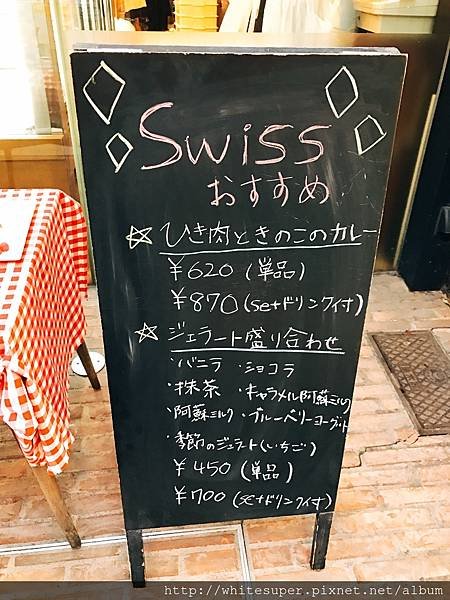 Swiss
おすすめ
☆ ひき肉ときのこのカレー
¥620 (単品)
¥870 (setドリンク付)
☆ ジェラート盛り合わせ
・バニラ ・ショコラ
・抹茶 ・キャラメル阿蘇ミルク
・阿蘇ミルク ・ブルーベリーヨーグルト
・季節のジェラート(いちご)
¥450 (単品)
¥700 (setドリンク付)
http://whitesuper.pixnet.net/album